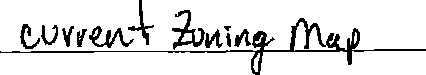 current Zoning Map